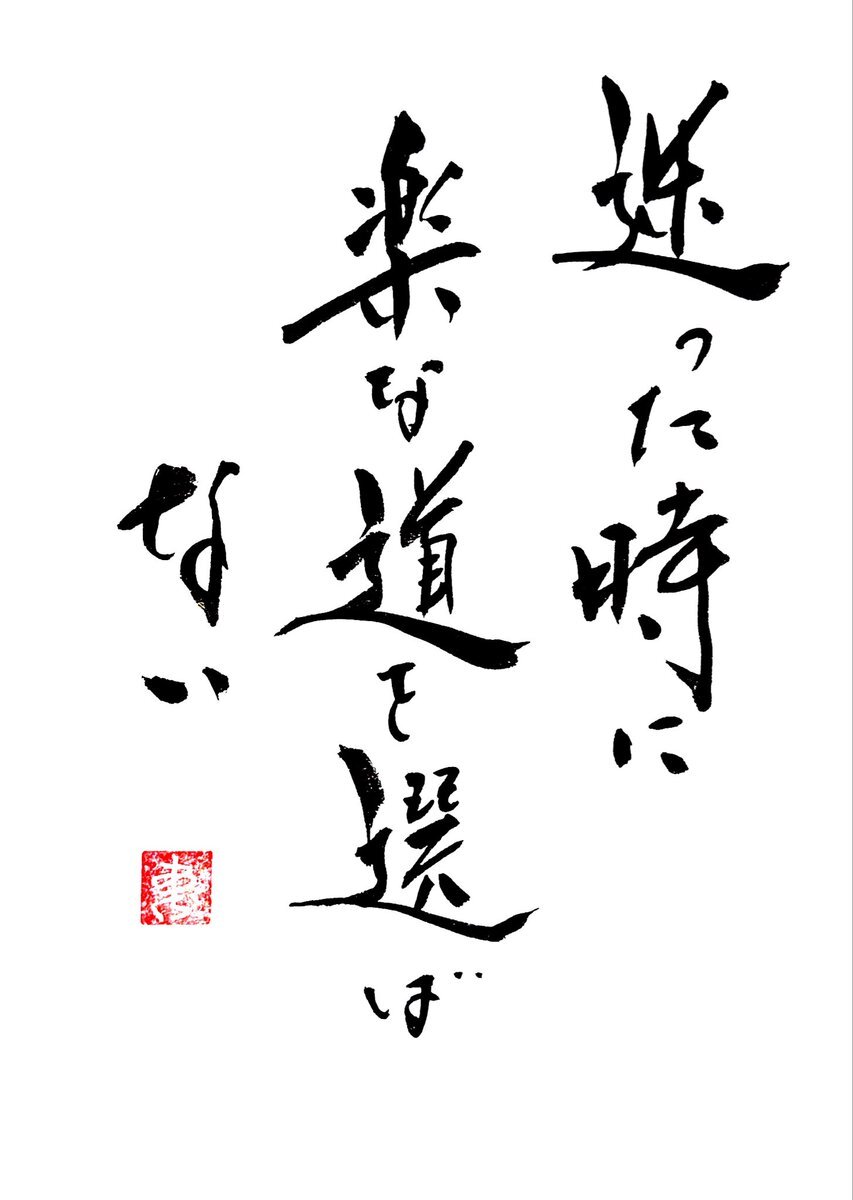 迷った時に
楽な道を選ば
ない